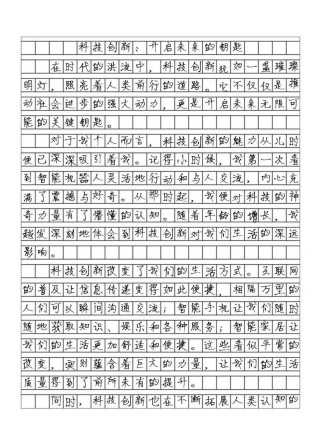 科技创新：开启未来的钥匙
在时代的洪流中，科技创新犹如一盏璀璨
明灯，照亮着人类前行的道路。它不仅仅是推
动社会进步的强大动力，更是开启未来无限可
能的关键钥匙。
对于我个人而言，科技创新的魅力从儿时
便已深深吸引着我。记得小时候，我第一次看
到智能机器人灵活地行动和与人交流，内心充
满了震撼与好奇。从那时起，我便对科技的神
奇力量有了懵懂的认知。随着年龄的增长，我
越发深刻地体会到科技创新对我们生活的深远
影响。
科技创新改变了我们的生活方式。互联网
的普及让信息传递变得如此便捷，相隔万里的
人们可以瞬间沟通交流；智能手机让我们随时
随地获取知识、娱乐和各种服务；智能家居让
我们的生活更加舒适和便捷。这些看似平常的
改变，实则蕴含着巨大的力量，让我们的生活
质量得到了前所未有的提升。
同时，科技创新也在不断拓展人类认知的